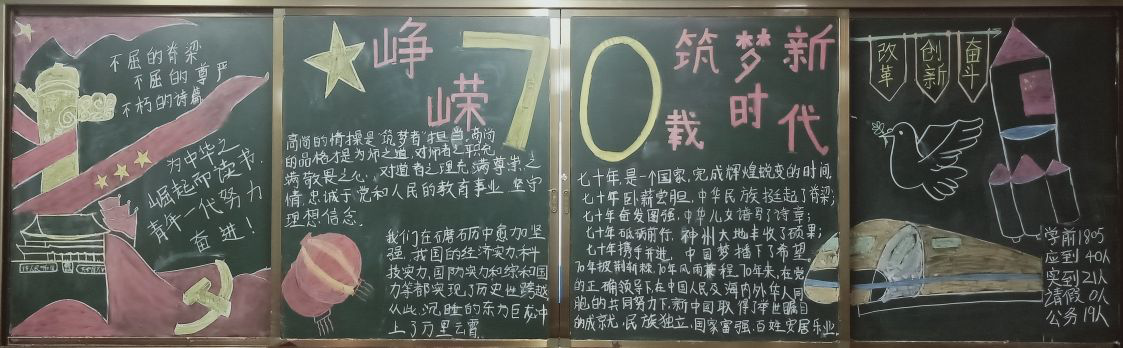 不屈的脊梁
不屈的尊严
不朽的诗篇
为中华之
崛起而读书
青年一代努力
奋进！
峥嵘70载
筑梦新时代
高尚的情操是“筑梦者”担当,高尚
的品格才是为师之道,对师者之职充
满敬畏之心,对道者之理充满尊崇之
情,忠诚于党和人民的教育事业,坚守
理想信念。
我们在磨石历中愈加坚
强,我国的经济实力,科
技实力,国防实力和综和国
力等都实现了历史性跨越
从此,沉睡的东方巨龙冲
上了万里云霄
七十年,是一个国家,完成辉煌蜕变的时间,
七十年卧薪尝胆,中华民族挺起了脊梁;
七十年奋发图强,中华儿女谱写了诗章;
七十年砥砺前行,神州大地丰收了硕果;
七十年携手并进,中国梦播下了希望。
70年披荆斩棘,70年风雨兼程,70年来,在党
的正确领导下,在中国人民及海内外华人同
胞的共同努力下,新中国取得了举世瞩目
的成就,民族独立,国家富强,百姓安居乐业。
改革
创新
奋斗
学前1805
应到 40人
实到21人
请假 0人
公务 19人